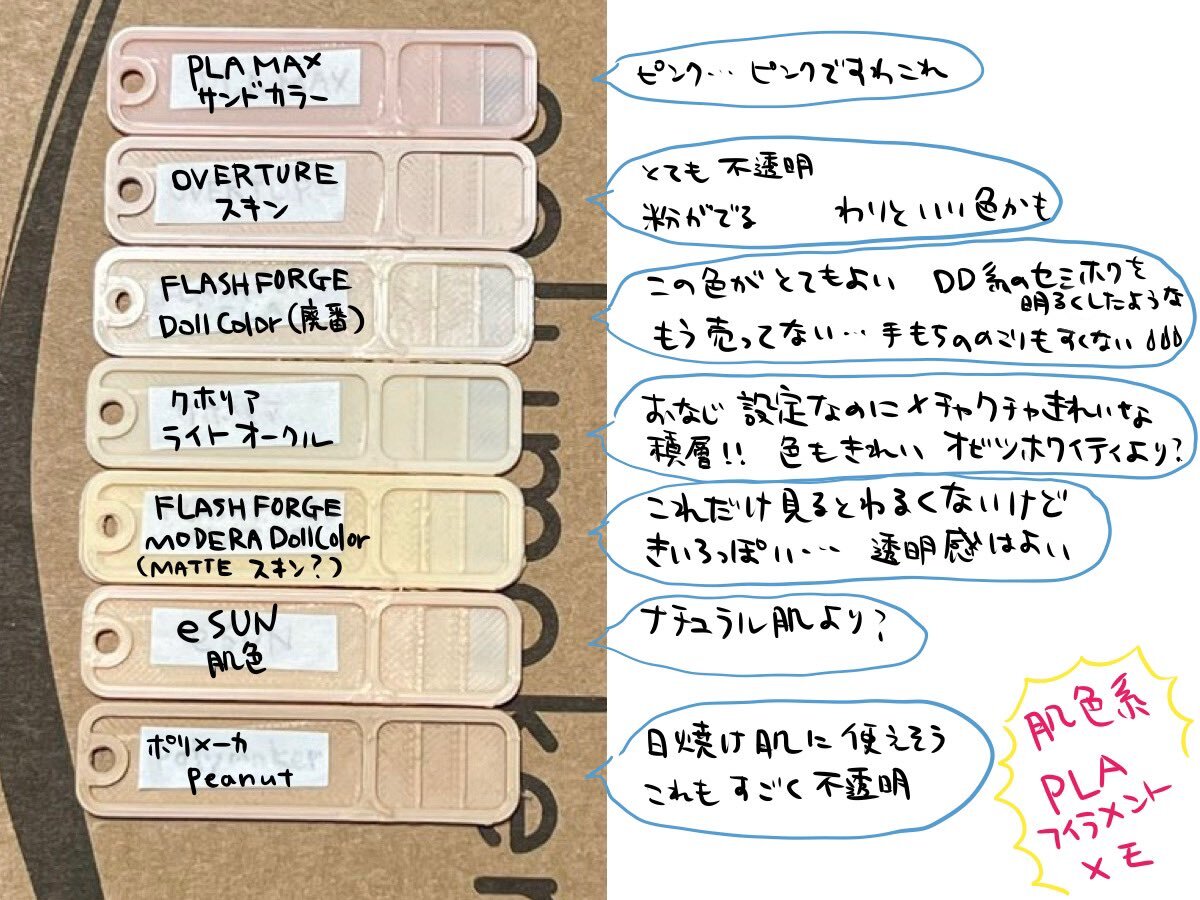 PLA MAX
サンドカラー
ピンク… ピンクですわこれ
OVERTURE
スキン
とても 不透明
粉がでる わりといい色かも
FLASHFORGE
Doll Color (廃番)
この色がとてもよい DD系のセミホワを
明るくしたような
もう売ってない… 手もちののこりもすくない
クホリア
ライトオークル
おなじ 設定なのにメチャクチャきれいな
積層!! 色もきれい オビツホワイティより?
FLASHFORGE
MODERA DollColor
(MATTE スキン?)
これだけ見るとわるくないけど
きいろっぽい… 透明感はよい
eSUN
肌色
ナチュラル肌より?
ポリメーカ
Peanut
日焼け肌に使えそう
これもすごく不透明
肌色系
PLA
フィラメント
メモ